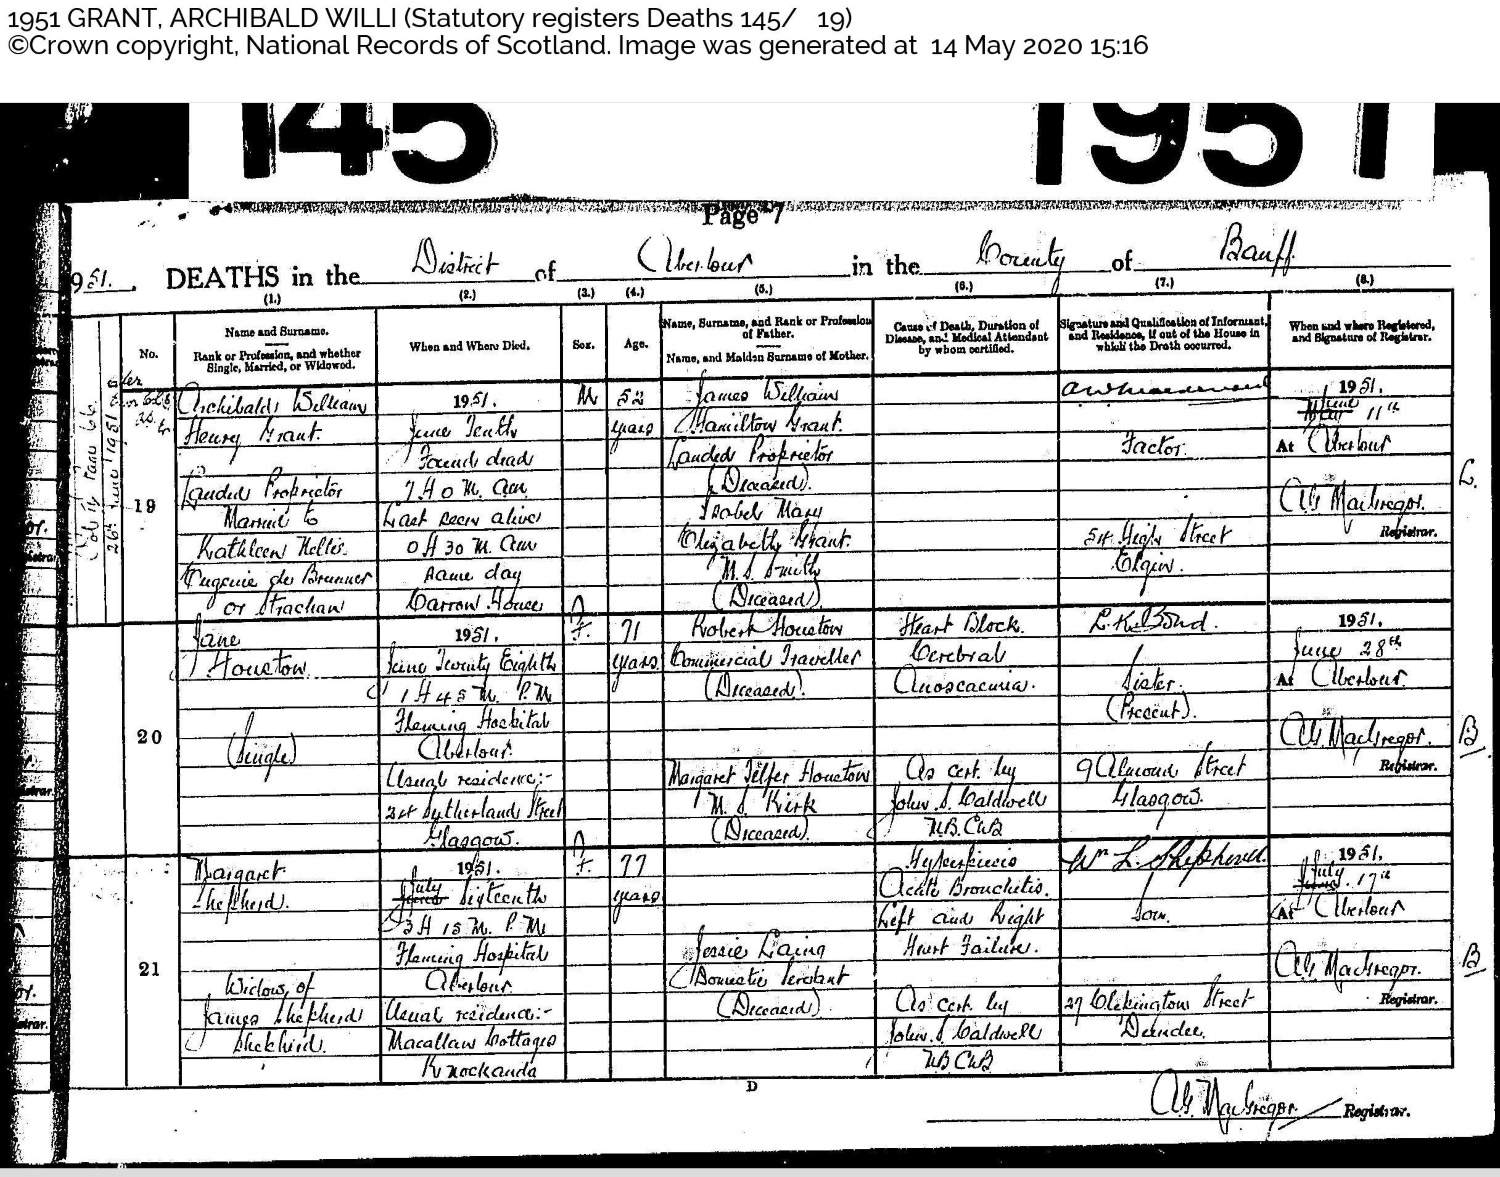 1951 GRANT, ARCHIBALD WILLI (Statutory registers Deaths 145/ 19)
©Crown copyright, National Records of Scotland. Image was generated at 14 May 2020 15:16
145 1951
Page 7
1951. DEATHS in the District of Aberlour in the County of Banff
(1.) (2.) (3.) (4.) (5.) (6.) (7.) (8.)
No.
Name and Surname.
Rank or Profession, and whether
Single, Married, or Widowed.
When and Where Died.
Sex.
Age.
Name, Surname, and Rank or Profession
of Father.
Name, and Maiden Surname of Mother.
Cause of Death, Duration of
Disease, and Medical Attendant
by whom certified.
Signature and Qualification of Informant,
and Residence, if out of the House in
which the Death occurred.
When and where Registered,
and Signature of Registrar.
19
Archibald William
Henry Grant.
Landed Proprietor
Married to
Kathleen
Eugenie de Brunner
or Strachan
1951.
June Tenth
Found dead
7 H 0 M. am
Last seen alive
0 H 30 M. am
same day
Carron House
M
52
years
James William
Hamilton Grant.
Landed Proprietor
(Deceased).
Isabel Mary
Elizabeth Grant.
M.S. Smith
(Deceased)
Factor.
54 High Street
Elgin.
1951.
June
May 11th
At Aberlour
AG MacGregor.
Registrar.
20
Jane
Houston.
(Single)
1951.
June Twenty Eighth
1 H 45 M. P.M.
Fleming Hospital
Aberlour.
Usual residence:-
Sutherland Street
Glasgow.
F.
71
years
Robert Houston
Commercial Traveller
(Deceased).
Margaret Telfer Houston
M.S. Kirk
(Deceased).
Heart Block.
Cerebral
As cert. by
John S. Caldwell
M.B. Ch.B
L. K. Bond.
Sister.
(Present).
9 Almond Street
Glasgow.
1951.
June 28th
At Aberlour.
AG MacGregor.
Registrar.
B
21
Margaret
Shepherd.
Widow of
James Shepherd
Shepherd.
1951.
July
June Sixteenth
3 H 15 M. P.M.
Fleming Hospital
Aberlour
Usual residence:-
Macallan Cottages
Knockando
F.
77
years
Jessie Laing
Domestic Servant
(Deceased).
Hyperpiesis
Acute Bronchitis.
Left and Right
Heart Failure.
As cert. by
John S. Caldwell
M.B. Ch.B
Wm L. Shepherd.
Son.
27 Street
Dundee.
1951.
July
June. 17th
At Aberlour
AG MacGregor.
Registrar.
B
D
AG. MacGregor. Registrar.